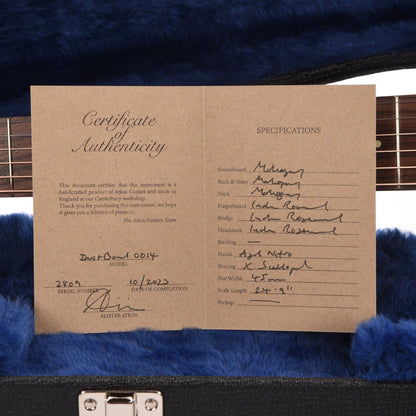 Certificate
of
Authenticity
This document certifies that this instrument is a
handcrafted product of Atkin Guitars and made in
England at our Canterbury workshop.
Thank you for purchasing this instrument, we hope
it gives you a lifetime of pleasure.
- The Atkin Guitars Team
Dust Bowl 0014
MODEL
2809 10/2023
SERIAL NUMBER DATE OF COMPLETION
ALISTER ATKIN
SPECIFICATIONS
Soundboard Mahogany
Back & Sides Mahogany
Neck Mahogany
Fingerboard Indian Rosewood
Bridge Indian Rosewood
Headstock Indian Rosewood
Binding —
Finish Aged Nitro
Bracing X Scalloped
Nut Width 45mm
Scale Length 24.9"
Pickup —